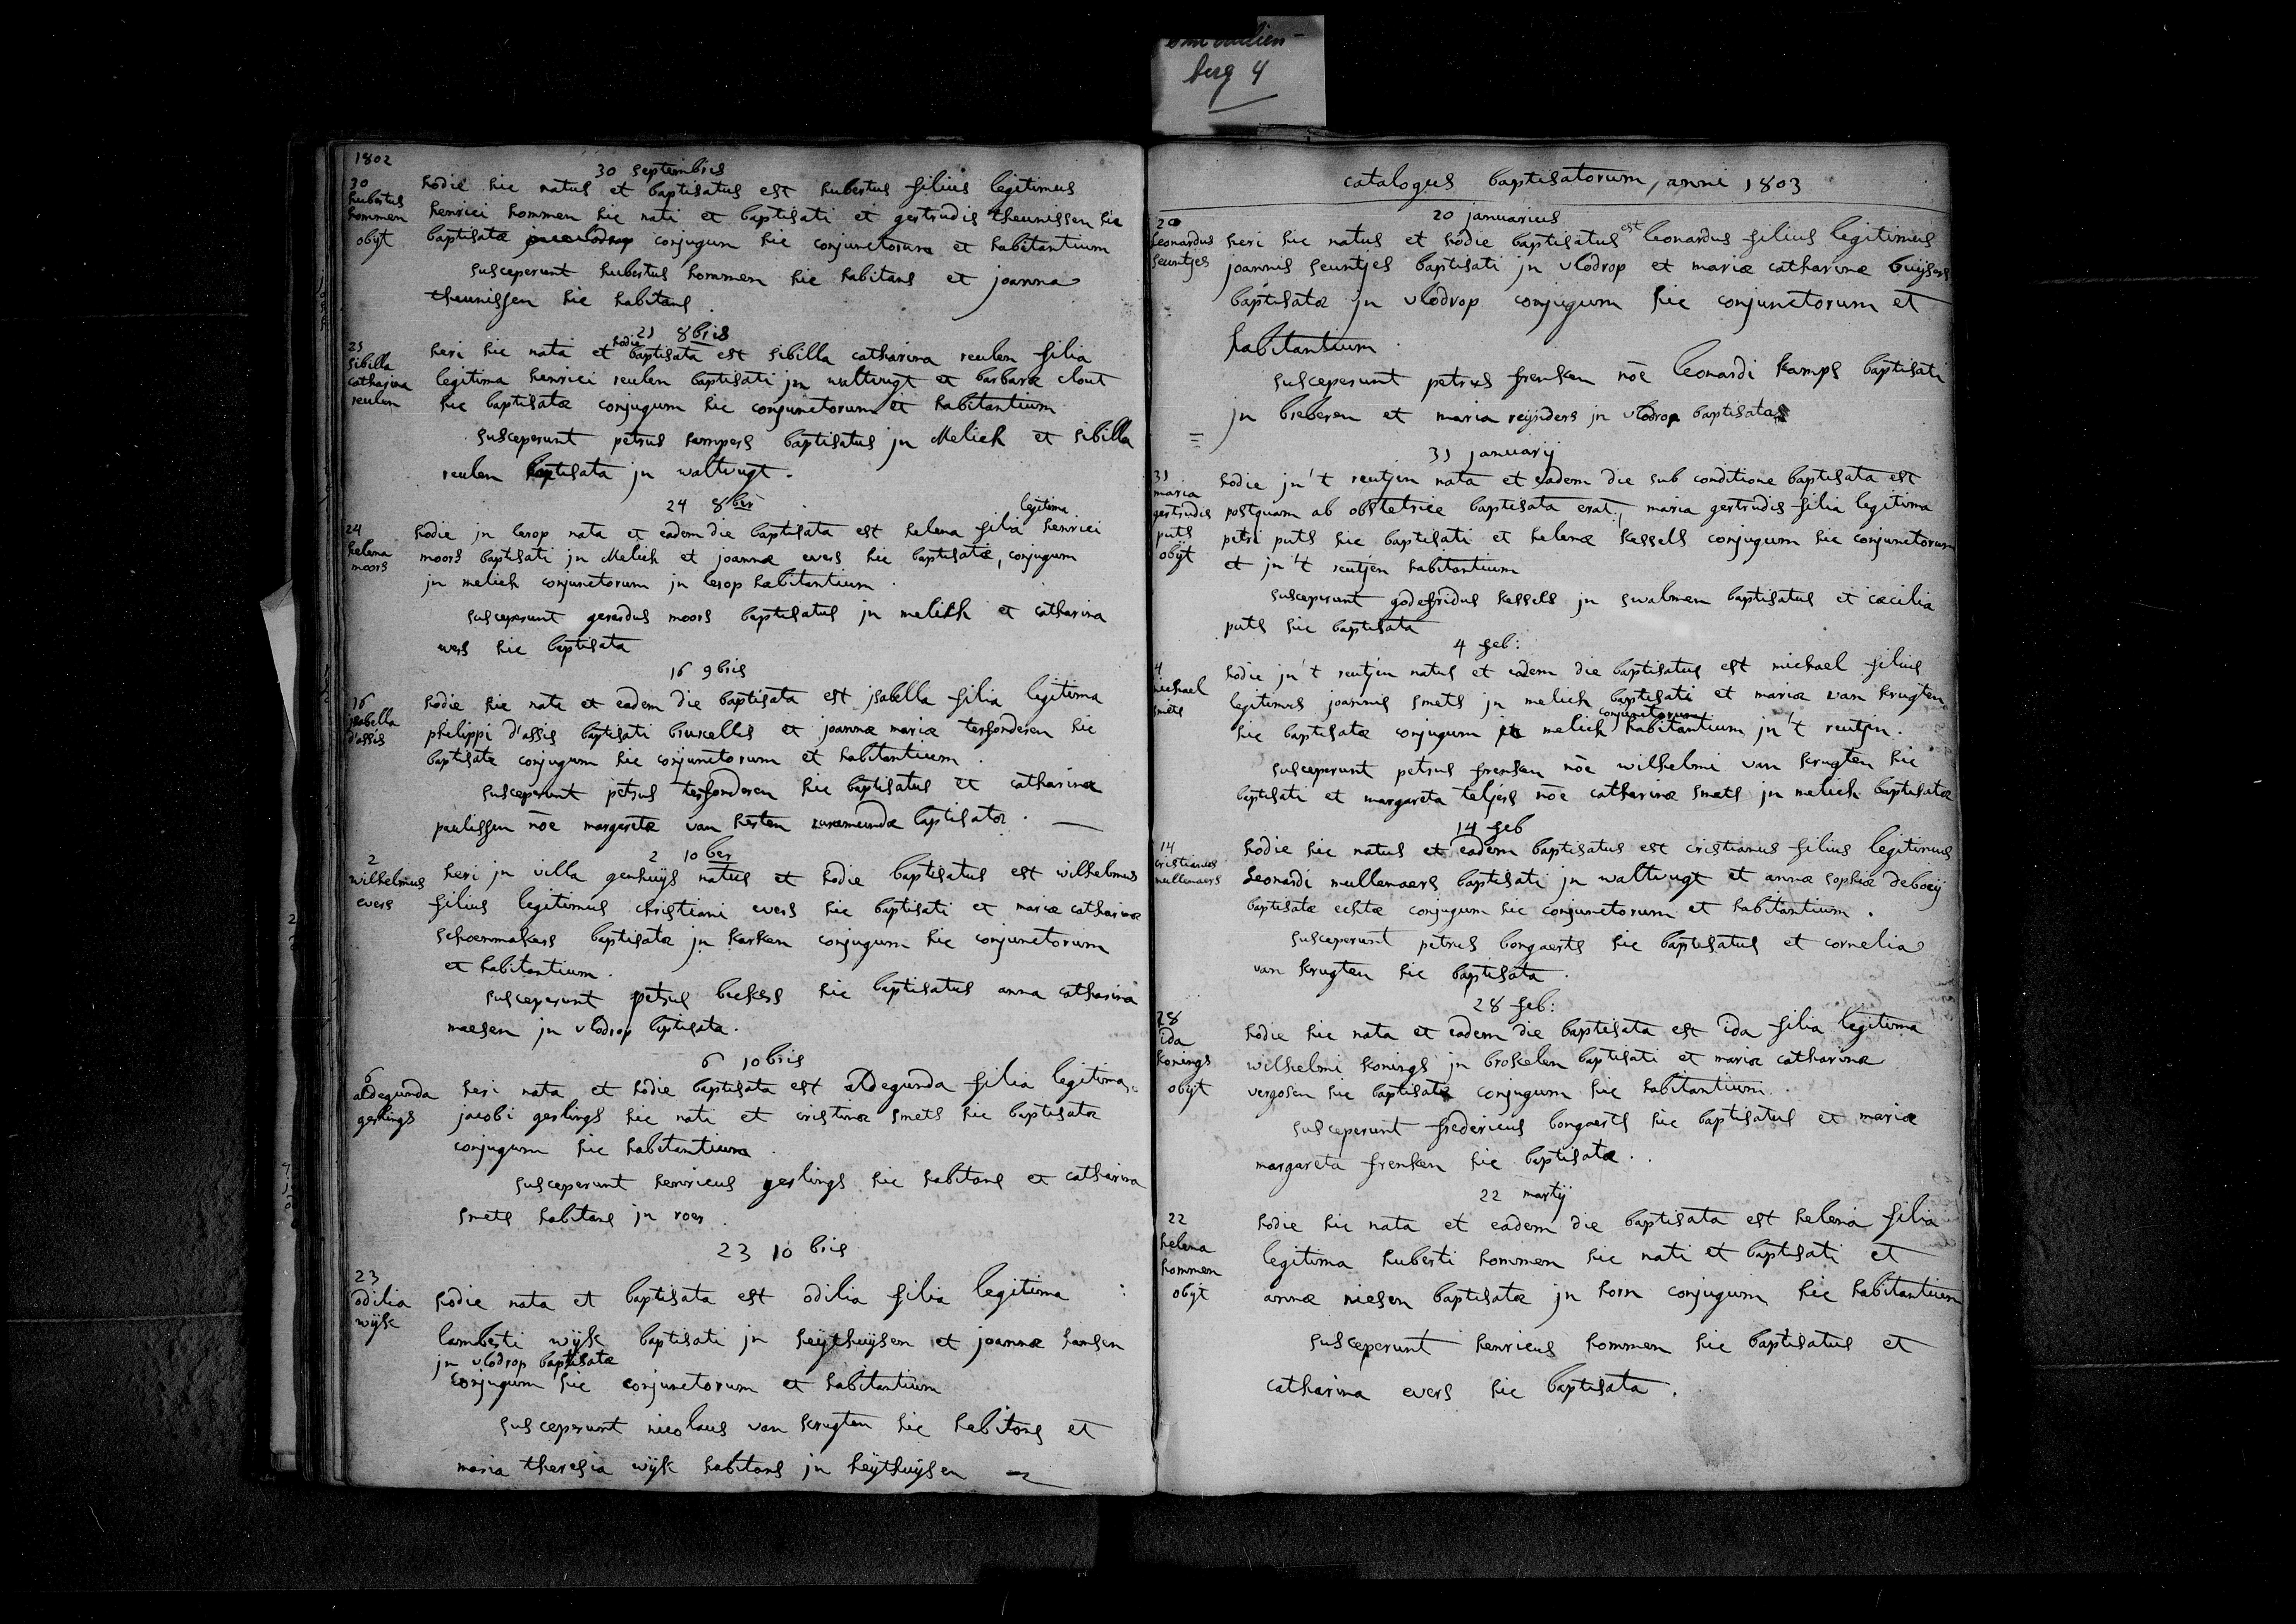 berg 4
1802
30 septembris
30
hubertus
hommen
obijt
hodie hic natus et baptisatus est hubertus filius legitimus
henrici hommen hic nati et baptisati et gertrudis theunissen hic
baptisatæ conjugum hic conjunctorum et habitantium
susceperunt hubertus hommen hic habitans et joanna
theunissen hic habitans
21 8bris
21
sibilla
catharina
reulen
heri hic nata et hodie baptisata est sibilla catharina reulen filia
legitima henrici reulen baptisati jn waltrugt et barbaræ clout
hic baptisatæ conjugum hic conjunctorum et habitantium
susceperunt petrus kampers baptisatus jn Melick et sibilla
reulen baptisata jn waltrugt.
24 8bris
24
helena
moors
hodie jn lerop nata et eadem die baptisata est helena filia legitima henrici
moors baptisati jn Melick et joannæ evers hic baptisatæ, conjugum
jn melick conjunctorum jn lerop habitantium.
susceperunt gerardus moors baptisatus jn melick et catharina
evers hic baptisata
16 9bris
16
jsabella
d'assis
hodie hic nata et eadem die baptisata est jsabella filia legitima
philippi d'assis baptisati bruxellis et joannæ mariæ terfonderen hic
baptisatæ conjugum hic conjunctorum et habitantium.
susceperunt petrus terfonderen hic baptisatus et catharinæ
paulissen nōe margaretæ van kesten ruræmundæ baptisatæ.
2 10ber
2
wilhelmus
evers
heri jn villa genhuijs natus et hodie baptisatus est wilhelmus
filius legitimus christiani evers hic baptisati et mariæ catharinæ
schoenmakers baptisatæ jn karken conjugum hic conjunctorum
et habitantium.
susceperunt petrus beckers hic baptisatus anna catharina
maesen jn vlodrop baptisata.
6 10bris
6
aldegunda
gerlings
heri nata et hodie baptisata est aldegunda filia legitima
jacobi gerlings hic nati et cristinæ smets hic baptisatæ
conjugum hic habitantium.
susceperunt henricus gerlings hic habitans et catharina
smets habitans jn roer.
23 10bris
23
odilia
wijk
hodie nata et baptisata est odilia filia legitima
lamberti wijk baptisati jn heijthuijsen et joannæ hansen
jn vlodrop baptisatæ
conjugum hic conjunctorum et habitantium
susceperunt nicolaus van krugten hic habitans et
maria theresia wijk habitans jn heijthuijsen
catalogus baptisatorum, anni 1803
20 januarius
20
leonardus
seuntjes
heri hic natus et hodie baptisatus est leonardus filius legitimus
joannis seuntjes baptisati jn vlodrop et mariæ catharinæ buijsers
baptisatæ jn vlodrop conjugum hic conjunctorum et
habitantium.
susceperunt petrus frenken nōe leonardi kamps baptisati
jn breberen et maria reijnders jn vlodrop baptisata
31 januarij
31
maria
gertrudis
puts
obijt
hodie jn't reutjen nata et eadem die sub conditione baptisata est
postquam ab obstetrice baptisata erat, maria gertrudis filia legitima
petri puts hic baptisati et helenæ kessels conjugum hic conjunctorum
et jn't reutjen habitantium
susceperunt godefridus kessels jn swalmen baptisatus et cæcilia
puts hic baptisata
4 feb:
4
michael
smets
hodie jn't reutjen natus et eadem die baptisatus est michael filius
legitimus joannis smets jn melick baptisati et mariæ van krugten
hic baptisatæ conjugum in melick conjunctorum habitantium jn't reutjen.
susceperunt petrus frenken nōe wilhelmi van krugten hic
baptisati et margareta teljers nōe catharinæ smets jn melick baptisatæ
14 feb
14
cristianus
mullenaers
hodie hic natus et eadem baptisatus est cristianus filius legitimus
Leonardi mullenaers baptisati jn waltrugt et annæ sophiæ deboeij
baptisatæ echtæ conjugum hic conjunctorum et habitantium.
susceperunt petrus bongaerts hic baptisatus et cornelia
van krugten hic baptisata.
28 feb:
28
ida
konings
obijt
hodie hic nata et eadem die baptisata est ida filia legitima
wilhelmi konings jn brokelen baptisati et mariæ catharinæ
vergosen hic baptisatæ conjugum hic habitantium.
susceperunt fredericus bongaerts hic baptisatus et mariæ
margareta frenken hic baptisatæ.
22 martij
22
helena
hommen
obijt
hodie hic nata et eadem die baptisata est helena filia
legitima huberti hommen hic nati et baptisati et
annæ niesen baptisatæ jn horn conjugum hic habitantium
susceperunt henricus hommen hic baptisatus et
catharina evers hic baptisata.